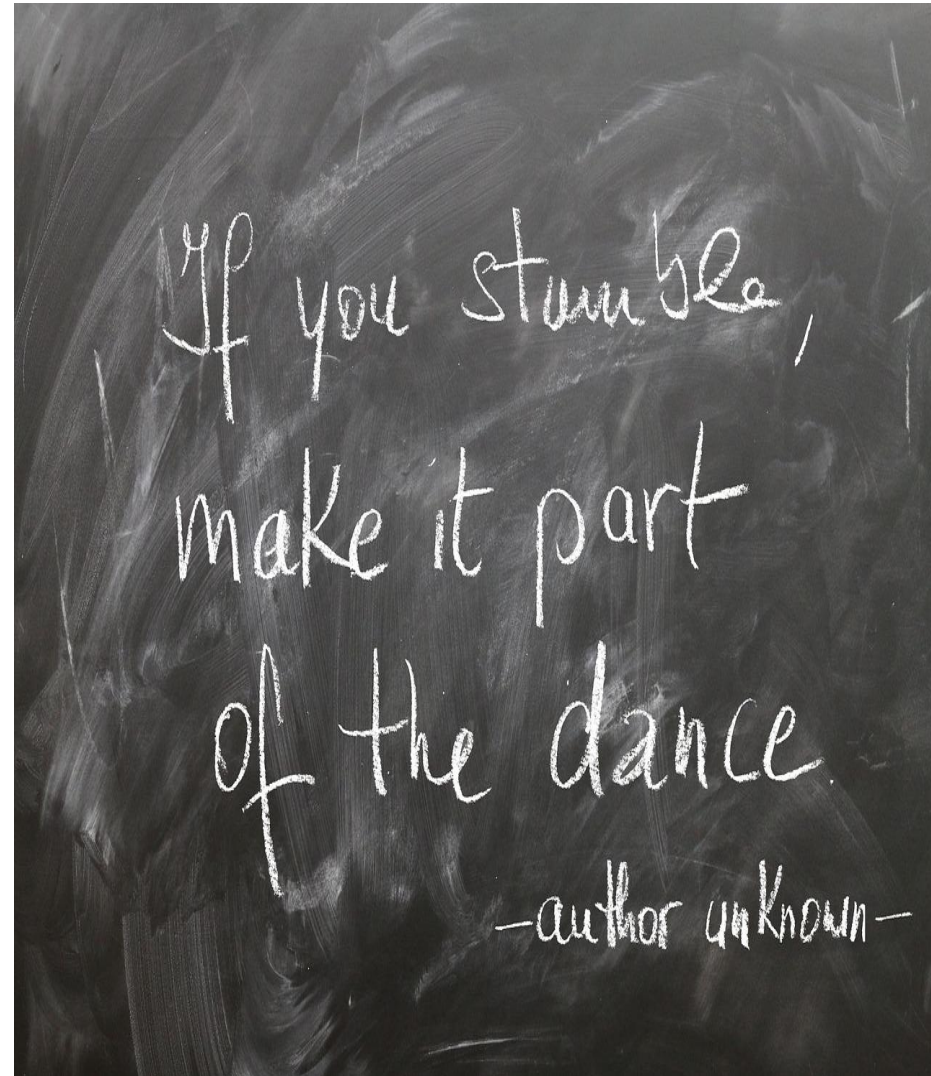 If you stumble,
make it part
of the dance.
-author unknown-